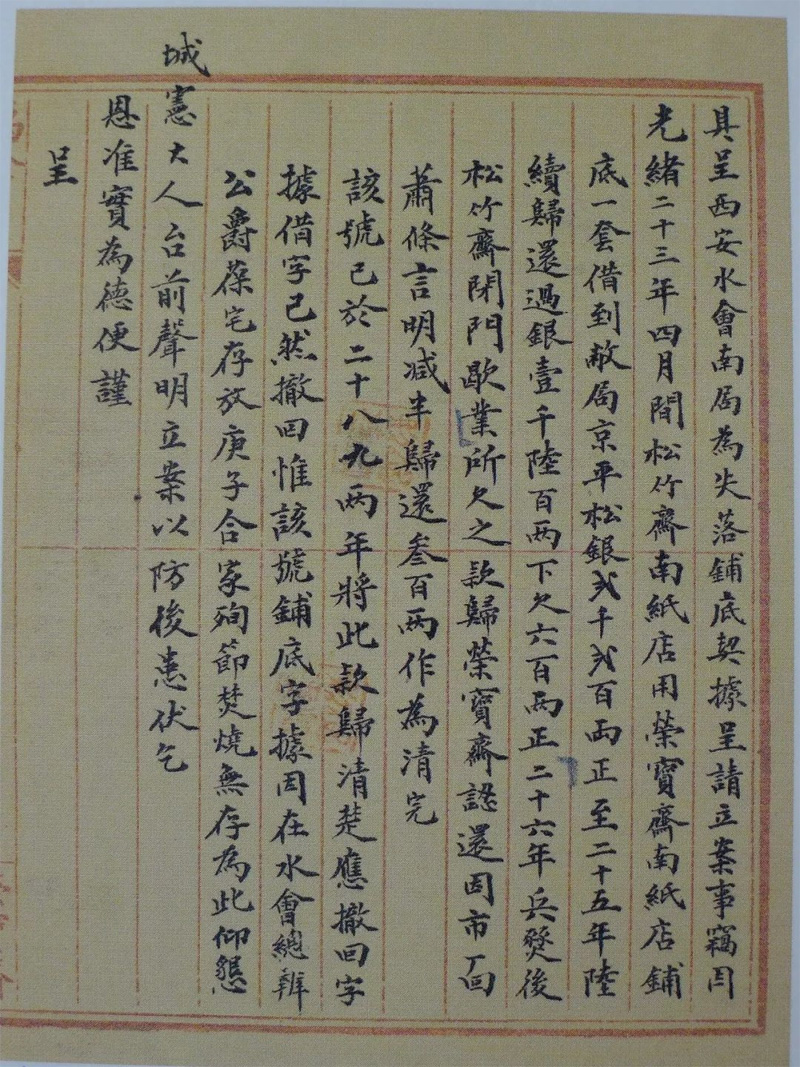 具呈西安水會南局為失落鋪底契據呈請立案事竊因
光緒二十三年四月間松竹齋南紙店用榮寶齋南紙店鋪
底一套借到敝局京平松銀弍千弍百両正至二十五年陸
續歸還過銀壹千陸百両下欠六百両正二十六年兵燹後
松竹齋閉門歇業所欠之款歸榮寶齋認還因市面
蕭條言明減半歸還叁百両作為清完
該號已於二十八九両年將此款歸清楚應撤回字
據借字已然撤回惟該號鋪底字據因在水會總辦
公爵葆宅存放庚子合家殉節焚燒無存為此仰懇
城憲大人台前聲明立案以防後患伏乞
恩准實為德便謹
呈